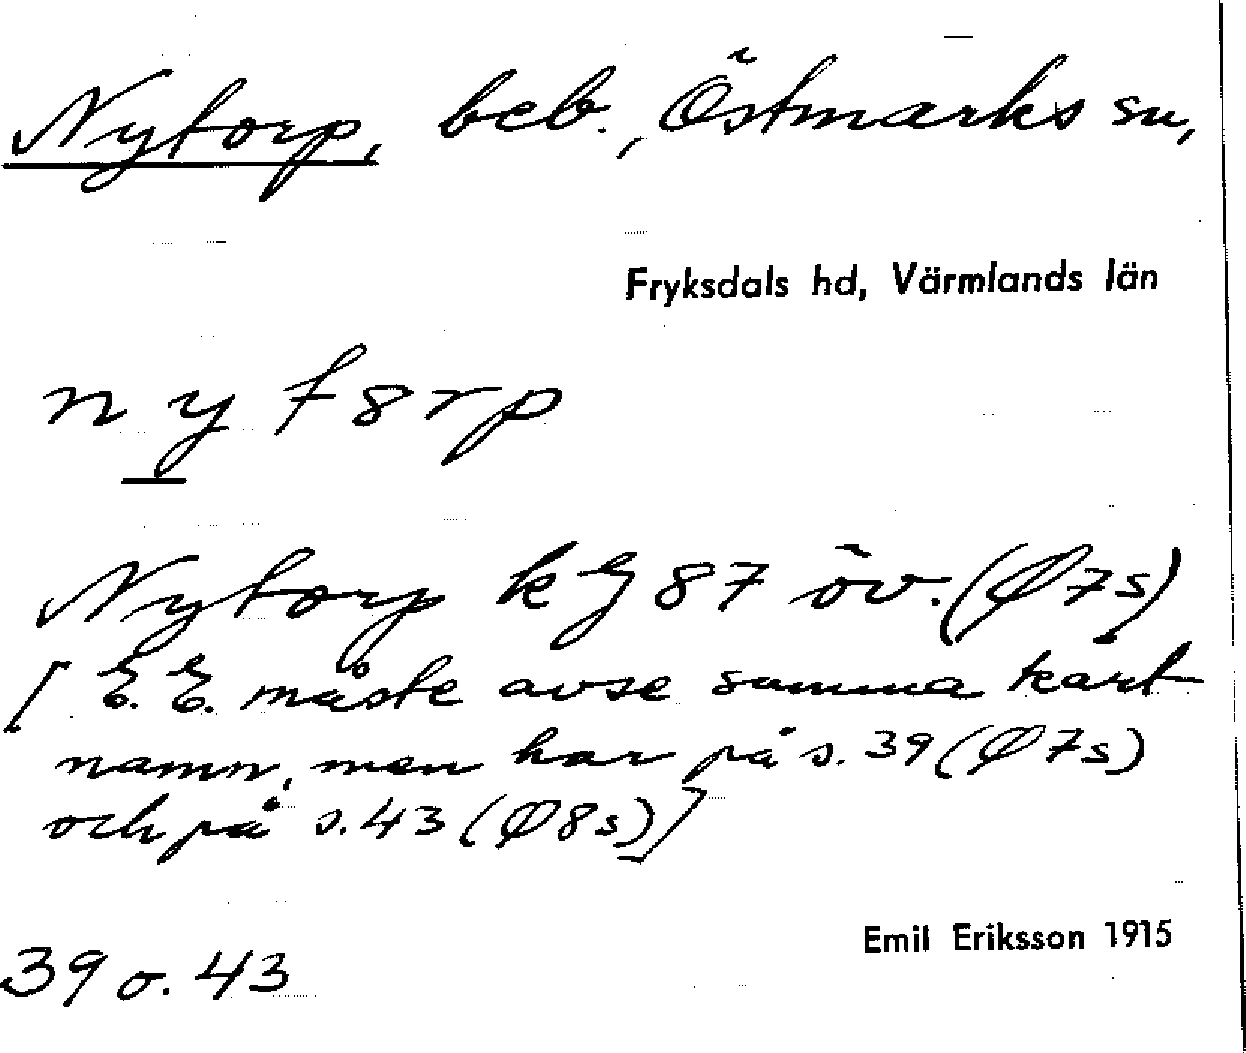 Nytorp, beb., Östmarks sn,
Fryksdals hd, Värmlands län
n y t 8 r p
Nytorp kg 87 öv. (Ø7s)
[E.E. måste avse samma kart
namn, men har på s. 39 (Ø7s)
och på s. 43 (Ø8s)]
Emil Eriksson 1915
39 o. 43